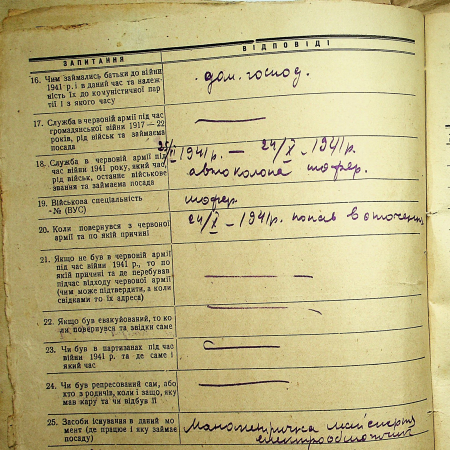 ЗАПИТАННЯ
ВІДПОВІДІ
16. Чим займались батьки до війни
1941 р. і в даний час та належ-
ність їх до комуністичної пар
тії і з якого часу
дом. господ.
17. Служба в червоній армії під час
громадянської війни 1917—22
років, рід військ та займаєма
посада
18. Служба в червоній армії під
час війни 1941 року, який час,
рід військ, останнє військове
звання та займаєма посада
1941 р. — 24/X - 1941 р.
автоколона шофер.
19. Військова спеціяльність
-№ (ВУС)
шофер
20. Коли повернувся з червоної
армії та по якій причині
24/X - 1941 р. попав в оточення
21. Якщо не був в червоній армії
під час війни 1941 р., то по
якій причині та де перебував
підчас відходу червоної армії
(чим може підтвердити, а коли
свідками то їх адреса)
22. Якщо був евакуйований, то ко
ли повернувся та звідки саме
23. Чи був в партизанах під час
війни 1941 р. та де саме і
який час
24. Чи був репресований сам, або
хто з родичів, коли і защо, яку
мав кару та чи відбув її
25. Засоби існування в даний мо
мент (де працює і яку займає
посаду)